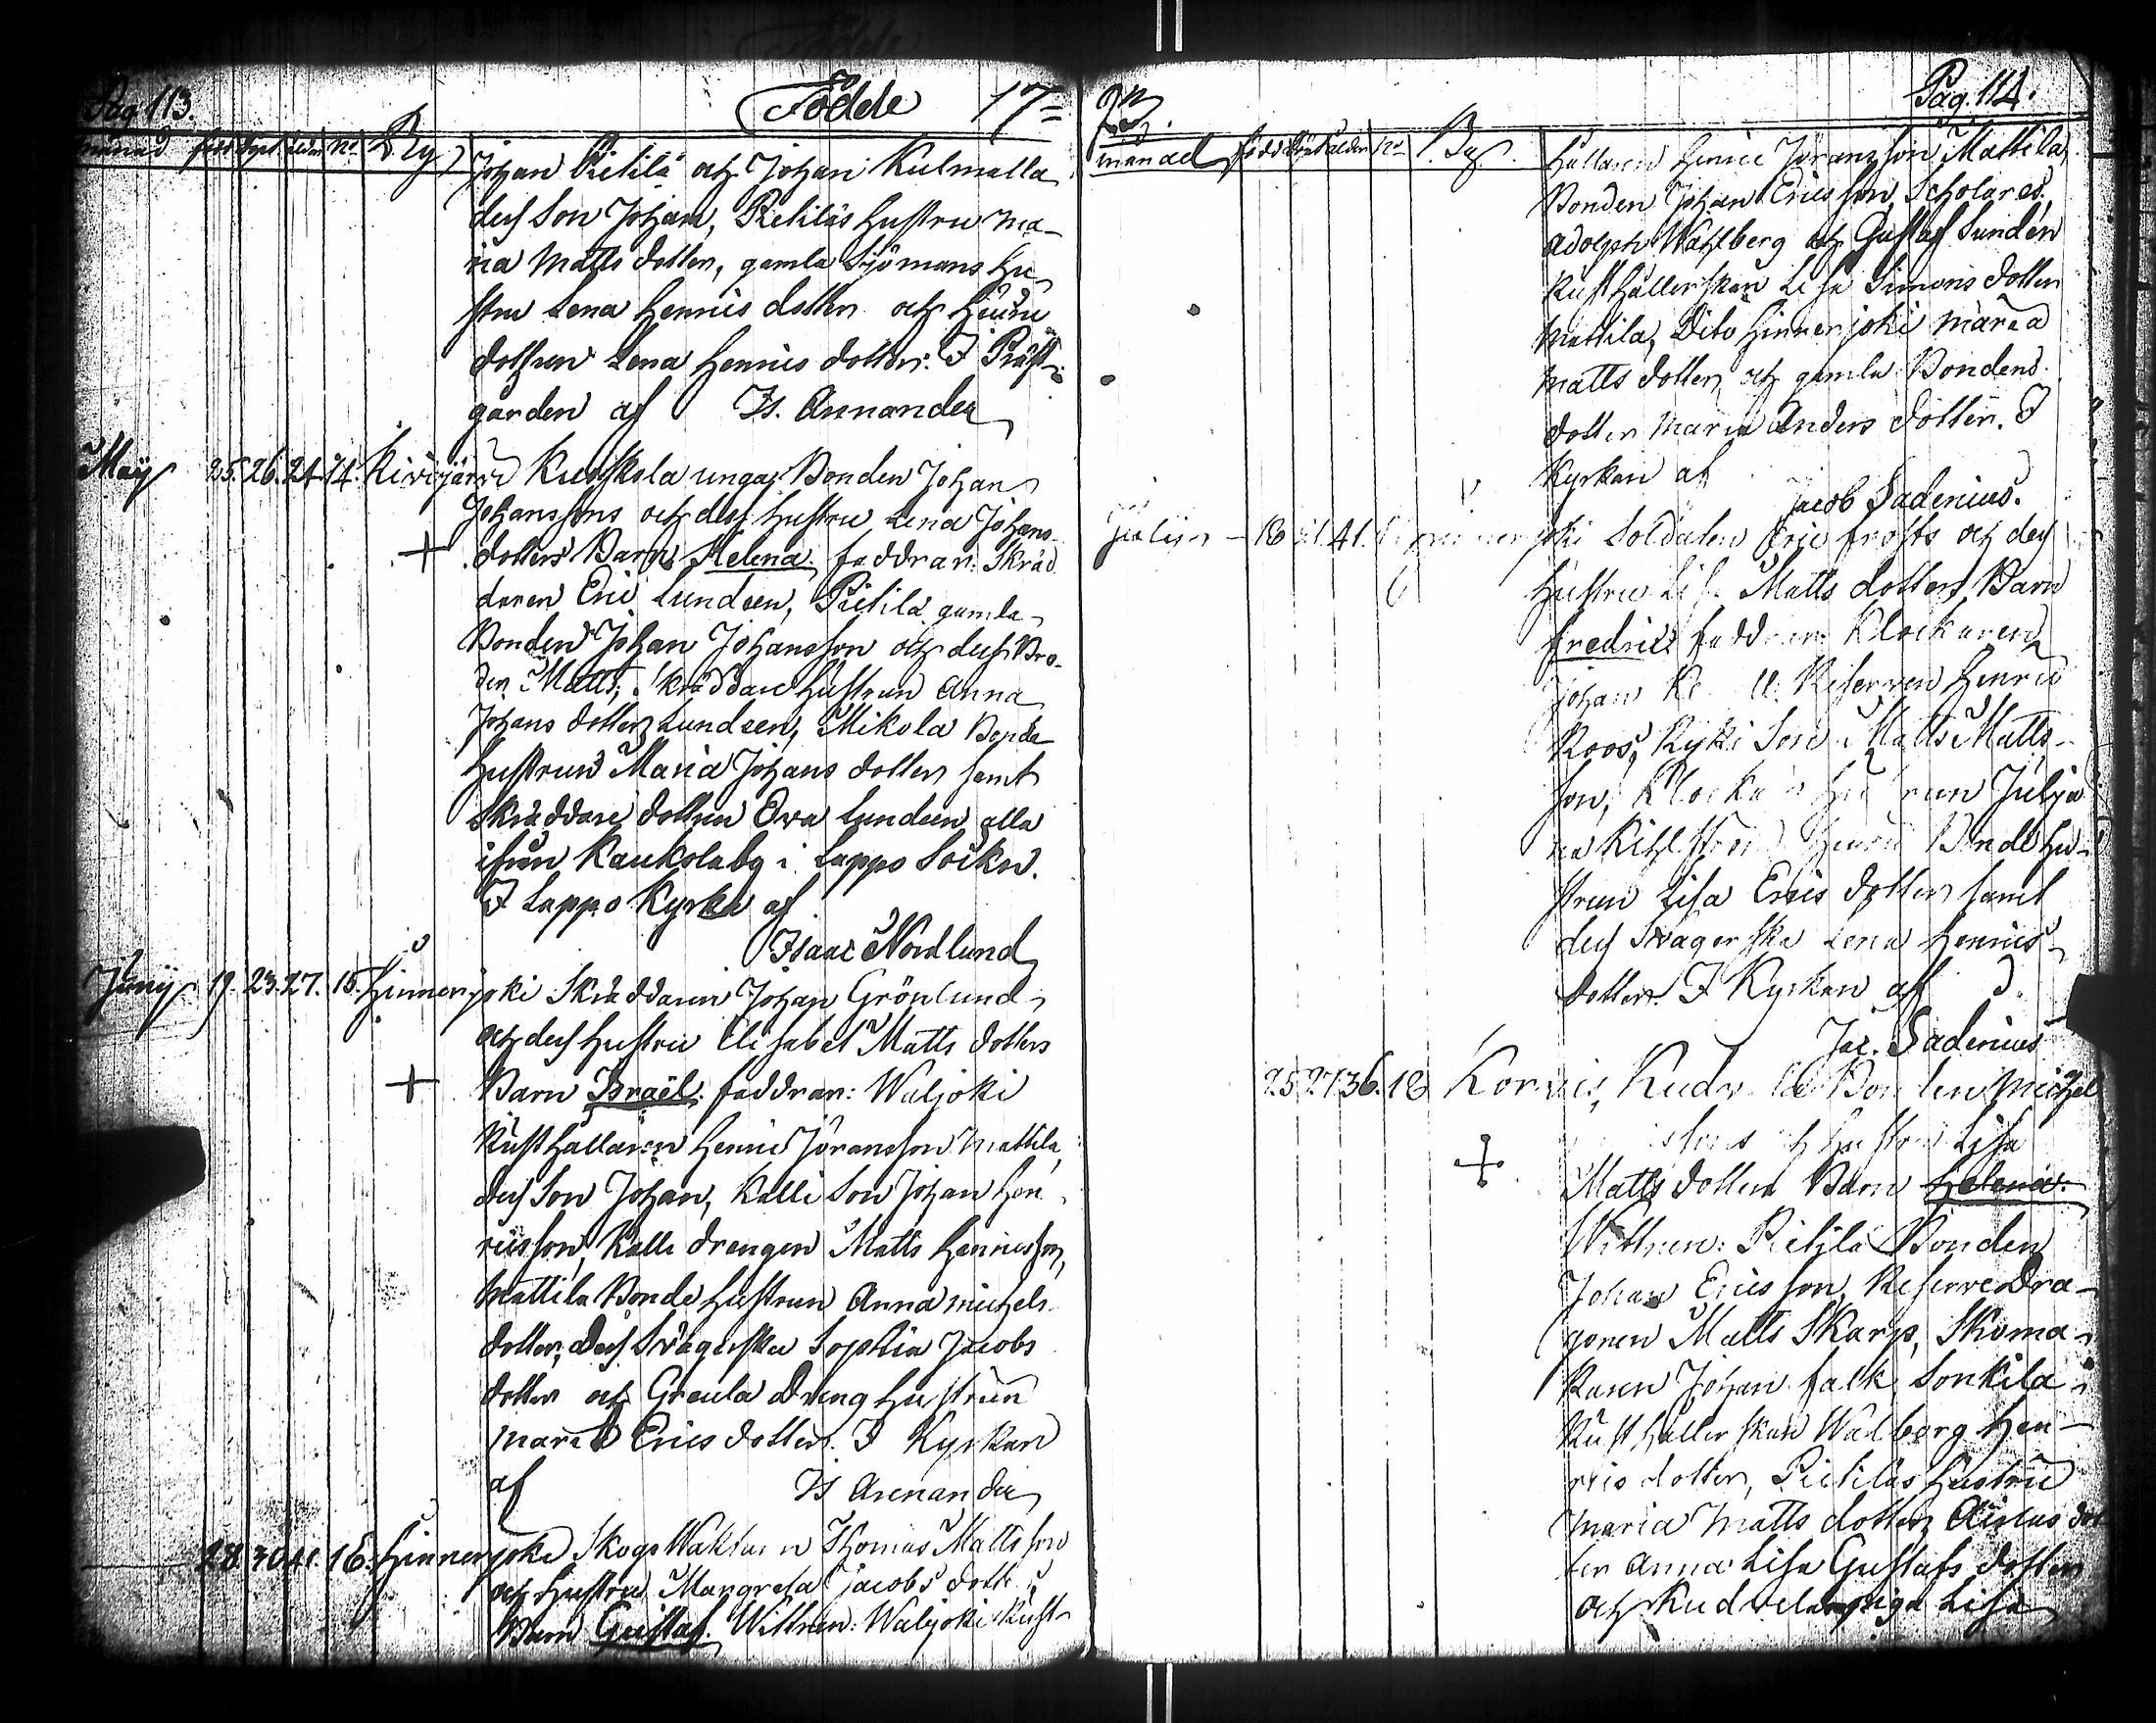 Pag 113.
Födde 17
månad född döpt ålder No By
Johan Pietilä och Johan Kulmalla
dess Son Johan, Pietiläs hustru Ma-
ria Matts dotter, gamla Sjömans hu
stru Lena Henrics dotter och
dottren Lena Henrics dotter. I Präst-
gården af Is. Arenander
Maij 25. 26. 24. 14. Kivijärvi Kuuskola unga Bonden Johan
Johanssons och dess hustru Lena Johans
dotters Barn Helena. faddrar: Skräd
daren Eric Lundeen, Pietilä gamla
Bonden Johan Johansson och dess Bro-
der Matts, Skräddare hustrun Anna
Johans dotter Lundeen, Mikola Bonde
hustrun Maria Johans dotter samt
Skräddare dottren Eva Lundeen alla
ifrån Kaukolaby i Lappo Sockn.
I Lappo Kyrka af
Isaac Nordlund
Junij 19. 23. 27. 15. Hinnerjoki Skräddarin Johan Grönlund
och dess hustru Elisabet Matts dotters
Barn Israël. faddrar: Waljoki
Rusthållaren Henric Jöransson Mattila,
dess Son Johan, Kalli Son Johan Hen
ricsson, Kalli drengen Matts Henricsson,
Mattila Bonde hustrun Anna Michels
dotter, dess Svägerska Sophia Jacobs
dotter och Greula Dreng hustrun
Maria Erics dotter. I Kyrkan
af Is Arenander
28. 30. 41. 16. Hinnerjoki Skogs Waktaren Thomas Mattsson
och hustru Margreta Jacobs dotters
Barn Gustaf. Wittnen: Waljoki Rust
Pag. 114.
månad född döpt ålder No By
hållaren Henric Jöransson Mattila,
Bonden Johan Ericsson, Scholares
Adolph Wahlberg och Gustaf Sundén
Rusthållerskan Lisa Simons dotter
Mattila, Dito Hinnerjoki Maria
Matts dotter och gamla Bondens
dotter Maria Anders dotter. I
Kyrkan af
Jacob Sadenius.
Julij 18 21. 41. Hinnerjoki Soldaten Eric Frosts och dess
hustru Lisa Matts dotters Barn
Fredric faddrar: Klockaren
Johan Reserven Henric
Roos, Kyki Son Matts Matts-
son, Klockare hustrun Julja
na Kihlström Bonde hu-
strun Lisa Erics dotter samt
dess Svägerska Lena Henrics
dotter. I Kyrkan af
Jac. Sadenius
25 27 36. 18 Korvis, Kudvela Bonden Michel
hustru Lisa
Matts dotters Barn Helena.
Wittnen: Pietilä Bonden
Johan Ericsson, Reserve Dra-
gonen Matts Skarp, Skoma-
karen Johan Falk, Sonkila
Rusthållerskan Walborg Hen-
rics dotter, Pietiläs hustru
Maria Matts dotter, dot
ter Anna Lisa Gustafs dotter
och Kudvela piga Lisa